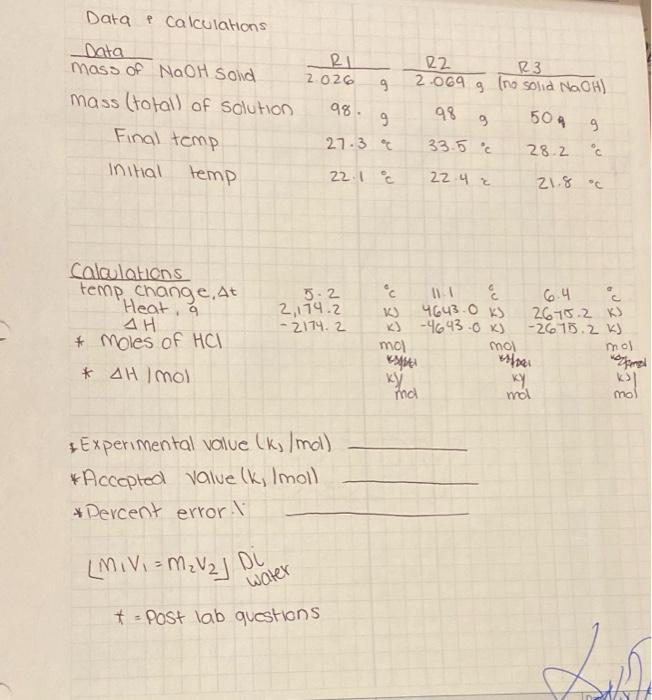 Data & Calculations
Data
R1 R2 R3
mass of NaOH Solid 2.026 g 2.069 g (no solid NaOH)
mass (total) of solution 98. g 98 g 50 g
Final temp 27.3 °C 33.5 °C 28.2 °C
Initial temp 22.1 °C 22.4 °C 21.8 °C
Calculations
temp change, Δt 5.2 °C 11.1 °C 6.4 °C
Heat, q 2,174.2 KJ 4643.0 KJ 2675.2 KJ
ΔH -2174.2 KJ -4643.0 KJ -2675.2 KJ
* moles of HCl mol mol mol
* ΔH /mol KJ/mol KJ/mol KJ/mol
* Experimental value (KJ/mol)
* Accepted value (KJ/mol)
* Percent error %
[M₁V₁ = M₂V₂] Di water
* = Post lab questions